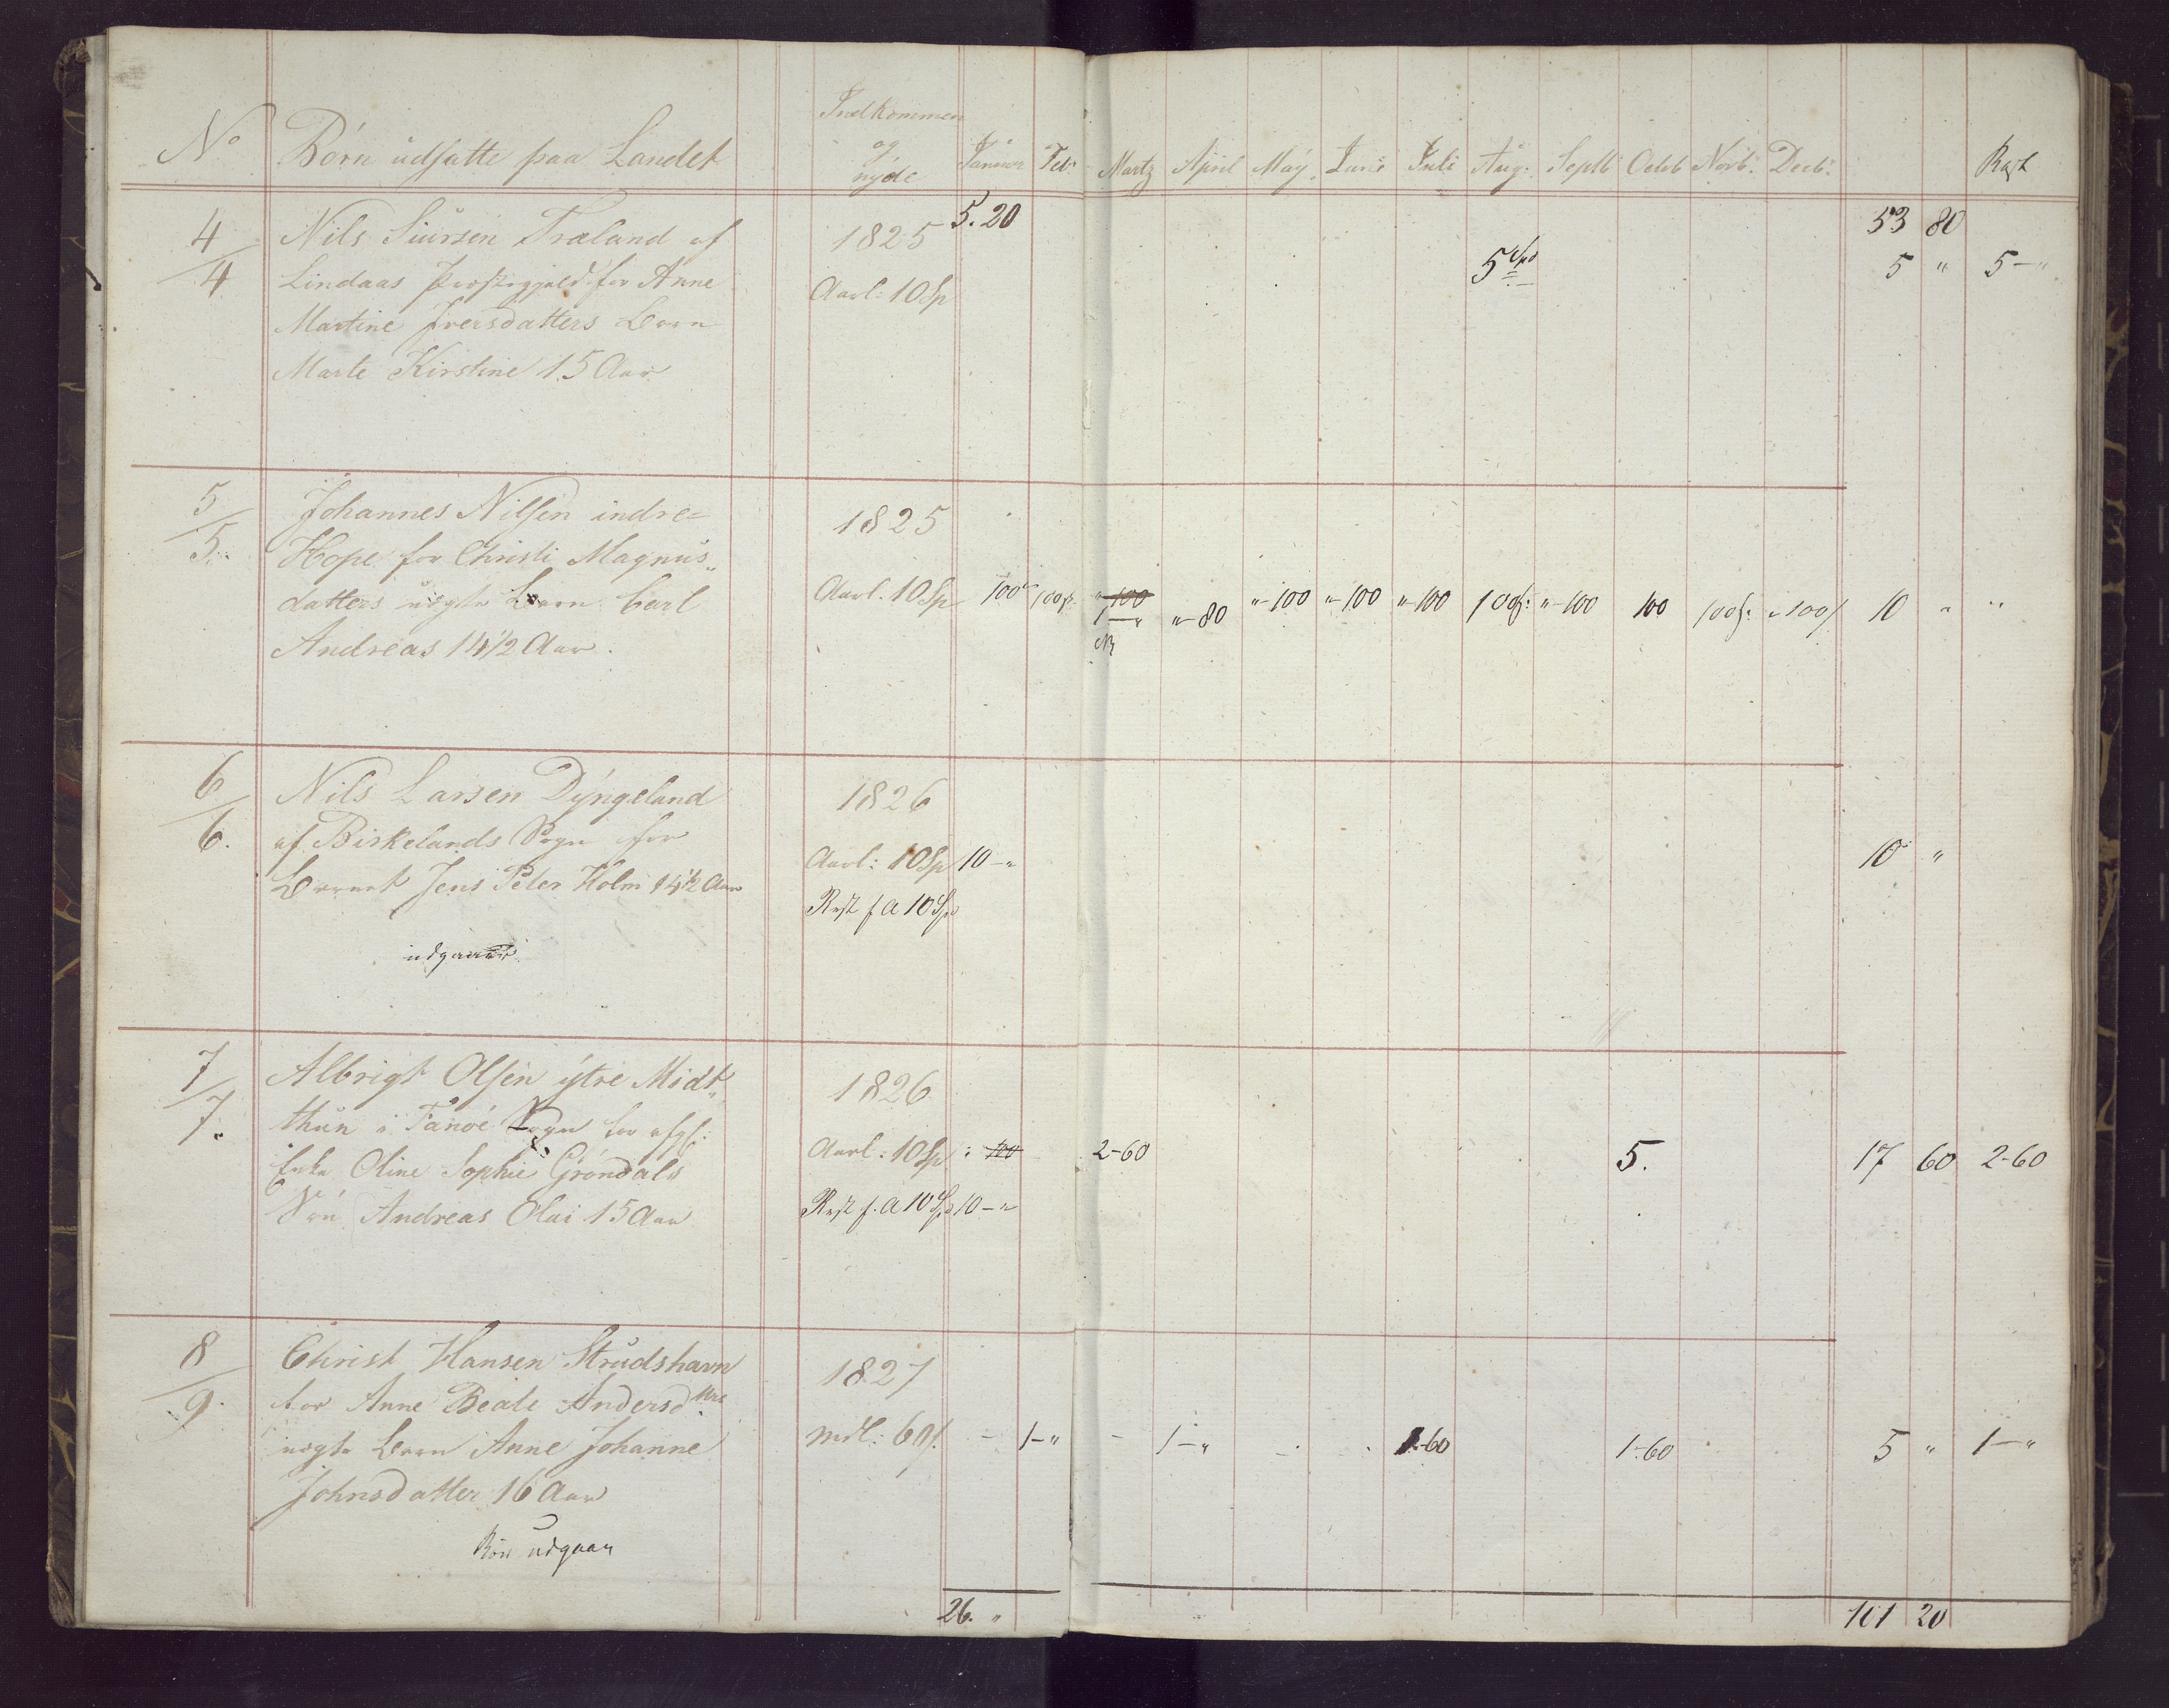 No Børn udsatte paa Landet Indkommen og nyde Januar Feb: Martz April May Juni Juli Aug: Septb: Octob Novb: Decb: Rest
5.20 53 80
4/4 Nils Siursen Træland af 1825
Lindaas Præstegjeld for Anne Aarl: 10 Sp 5 Spd 5 " 5-"
Martine Iversdatters Barn
Marte Kirstine 15 Aar
5/5. Johannes Nilsen indre= 1825
Hope for Christi Magnus„
datters uægte Barn Carl Aarl. 10 Sp 100 100 s. "-100 1-" "-80 "-100 "-100 "-100 100 s: "-100 100 100 s: "-100 s 10 " "
Andreas 14 1/2 Aar.
6/6. Nils Larsen Dyngeland 1826
af Birkelands Sogn for Aarl: 10 Sp 10-" 10 "
Barnet Jens Peter Holm 14 1/2 Aar Rest f A 10 Spd
udgaaet
7/7. Albrigt Olsen ytre Midt„ 1826
thun i Fanøe Sogn for afg:
Enke Oline Sophie Grøndals Aarl: 10 Sp 100 2-60 5. 17 60 2-60
Søn Andreas Olai 15 Aar Rest f. A 10 Spd 10-"
8/9. Christ Hansen Strudshavn 1827
for Anne Beate Andersdttrs
uægte Barn Anne Johanne mdl: 60 s. - 1-" - 1-" 1-60 1-60 5 " 1-"
Johnsdatter 16 Aar
Bør udgaae
26. " 101 20